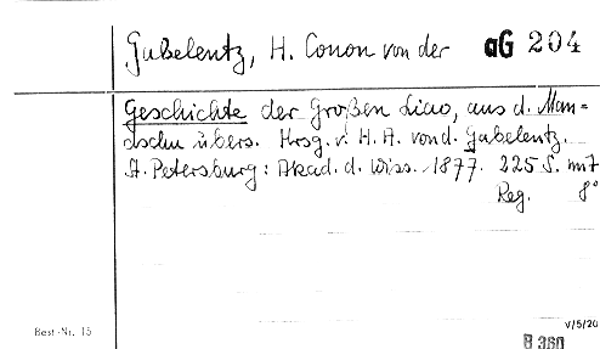 Gabelentz, H. Conon von der aG 204
Geschichte der Großen Liao, aus d. Man=
dschu übers. Hrsg. v. H. A. von d. Gabelentz.
St. Petersburg: Akad. d. Wiss. 1877. 225 S. mit
Reg. 8°
Best.-Nr. 15
V/5/20
B 360